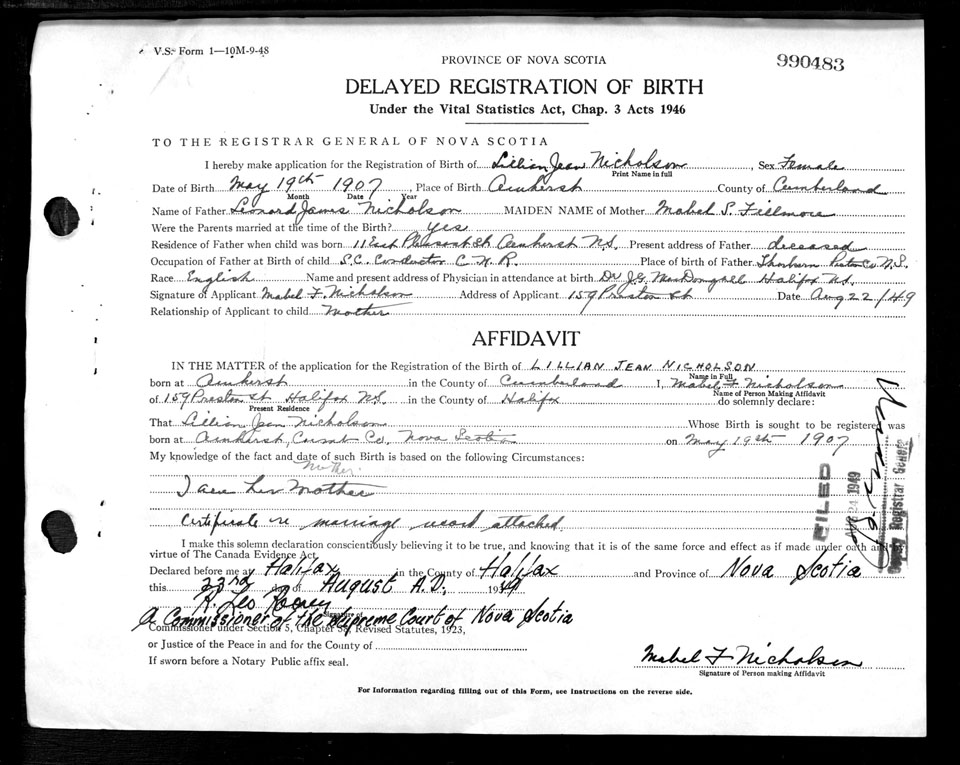 V.S. Form 1—10M-9-48
PROVINCE OF NOVA SCOTIA
990483
DELAYED REGISTRATION OF BIRTH
Under the Vital Statistics Act, Chap. 3 Acts 1946
TO THE REGISTRAR GENERAL OF NOVA SCOTIA
I hereby make application for the Registration of Birth of Lillian Jean Nicholson, Sex Female
Print Name in full
Date of Birth May 19th 1907, Place of Birth Amherst County of Cumberland
Month Date Year
Name of Father Leonard James Nicholson MAIDEN NAME of Mother Mabel S. Fillmore
Were the Parents married at the time of the Birth? yes
Residence of Father when child was born 11 East Pleasant St Amherst N.S. Present address of Father deceased
Occupation of Father at Birth of child S.C. Conductor C.N.R. Place of birth of Father Thorburn Pictou Co N.S.
Race English Name and present address of Physician in attendance at birth Dr J.G. MacDougall Halifax N.S.
Signature of Applicant Mabel F. Nicholson Address of Applicant 159 Preston St Date Aug 22/49
Relationship of Applicant to child Mother
AFFIDAVIT
IN THE MATTER of the application for the Registration of the Birth of LILLIAN JEAN NICHOLSON
Name in Full
born at Amherst in the County of Cumberland I, Mabel F Nicholson
Name of Person Making Affidavit
of 159 Preston St Halifax N.S. in the County of Halifax do solemnly declare:
Present Residence
That Lillian Jean Nicholson Whose Birth is sought to be registered was
born at Amherst, Co. Nova Scotia on May 19th 1907
My knowledge of the fact and date of such Birth is based on the following Circumstances:
Mother.
I am her Mother
Certificate re marriage record attached
FILED
24 1949
Registrar General
I make this solemn declaration conscientiously believing it to be true, and knowing that it is of the same force and effect as if made under oath and by
virtue of The Canada Evidence Act.
Declared before me at Halifax in the County of Halifax and Province of Nova Scotia
this 23rd day of August A.D. 1949
R. Leo Rooney
Signature of
A Commissioner of the Supreme Court of Nova Scotia
Commissioner under Section 5, Chapter Revised Statutes, 1923,
or Justice of the Peace in and for the County of
If sworn before a Notary Public affix seal.
Mabel F Nicholson
Signature of Person making Affidavit
For Information regarding filling out of this Form, see Instructions on the reverse side.